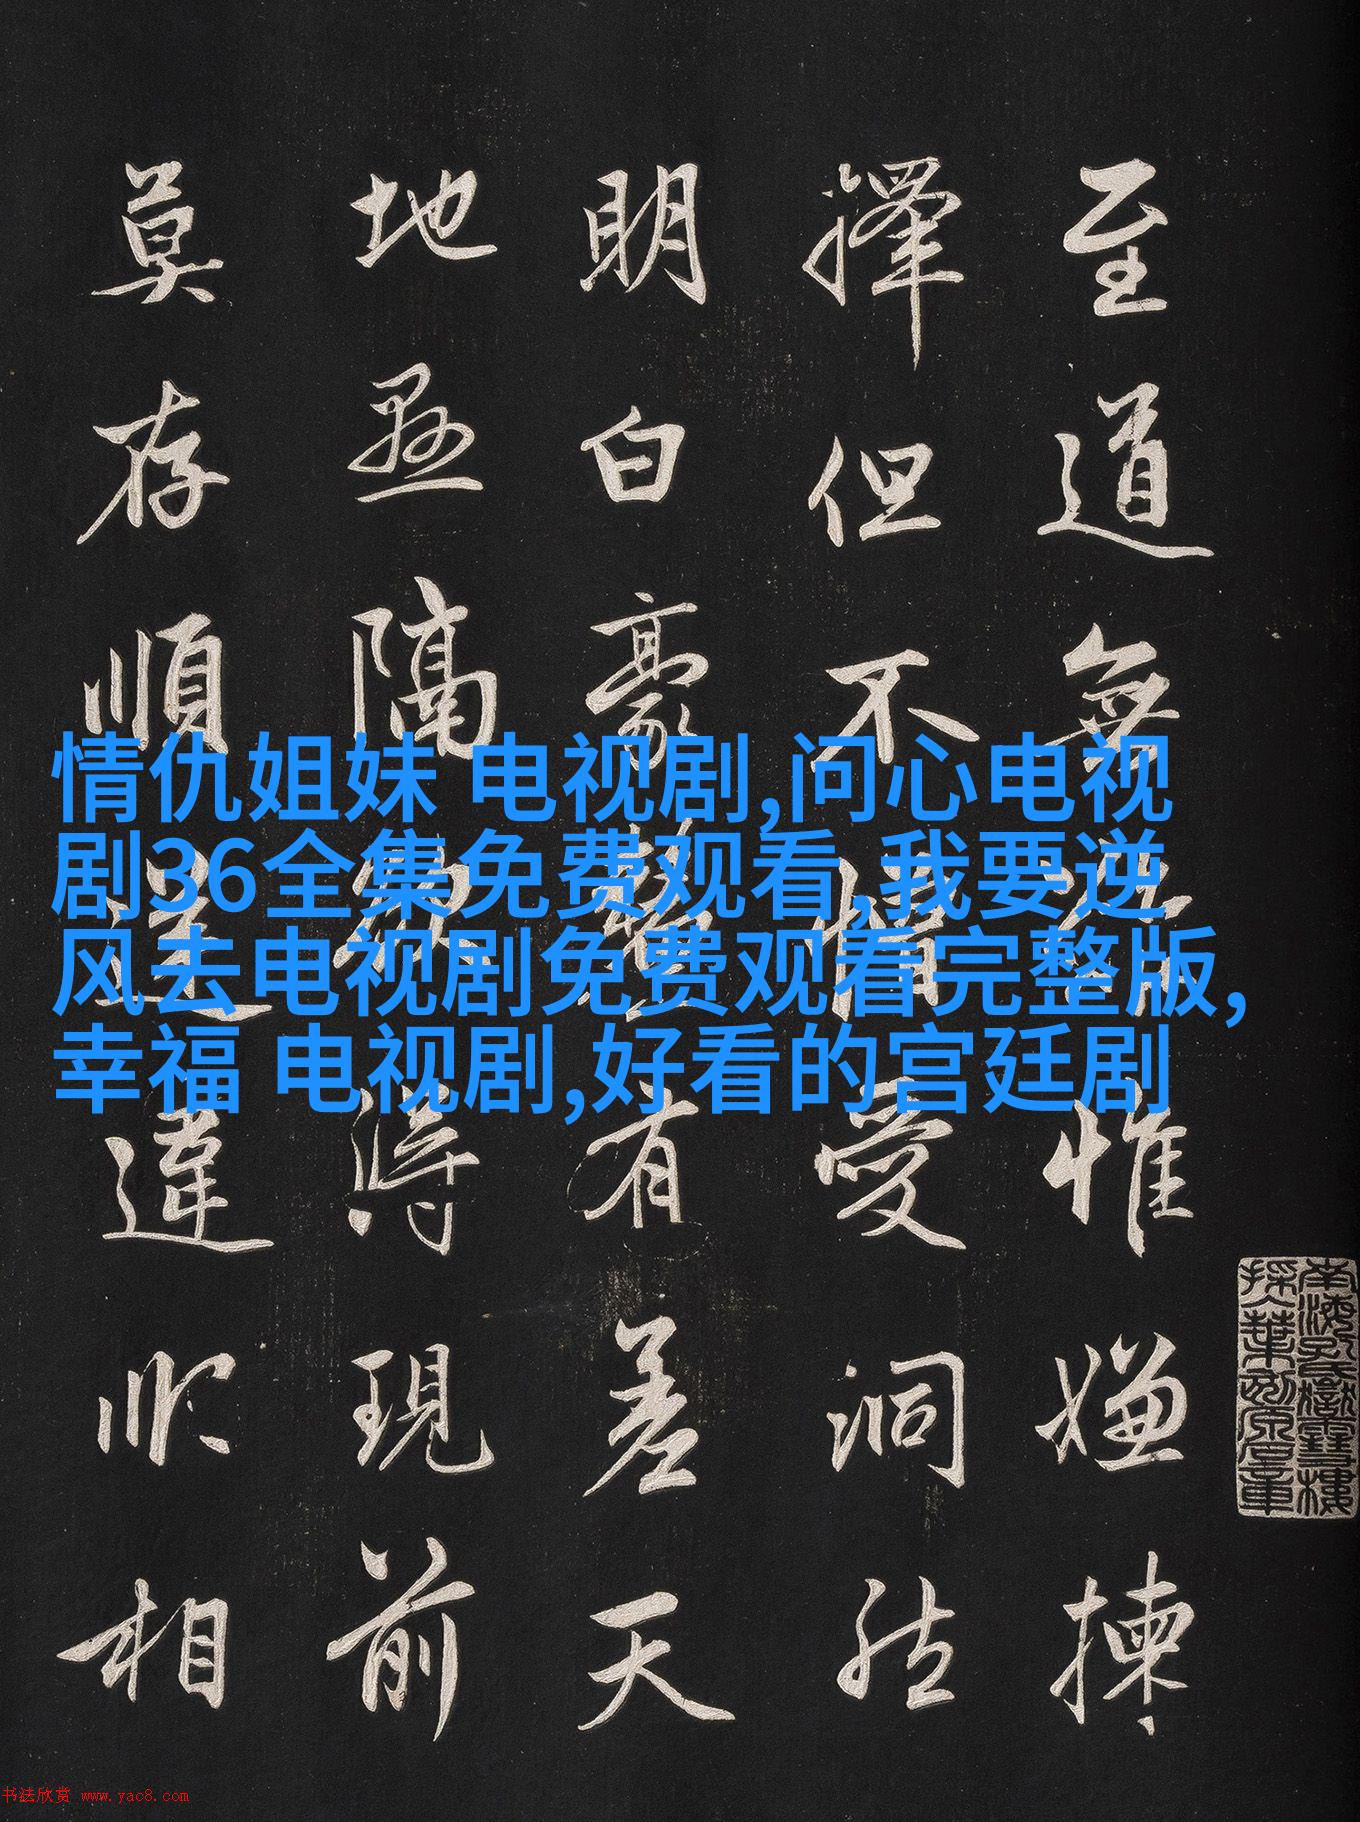 至道無難惟嫌揀
擇但不憎愛洞然
明白豪釐有差天
地懸隔欲得現前
莫存順逆違順相
情仇姐妹 电视剧,问心电视
剧36全集免费观看,我要逆
风去电视剧免费观看完整版,
幸福 电视剧,好看的宫廷剧
书法欣赏 www.yac8.com